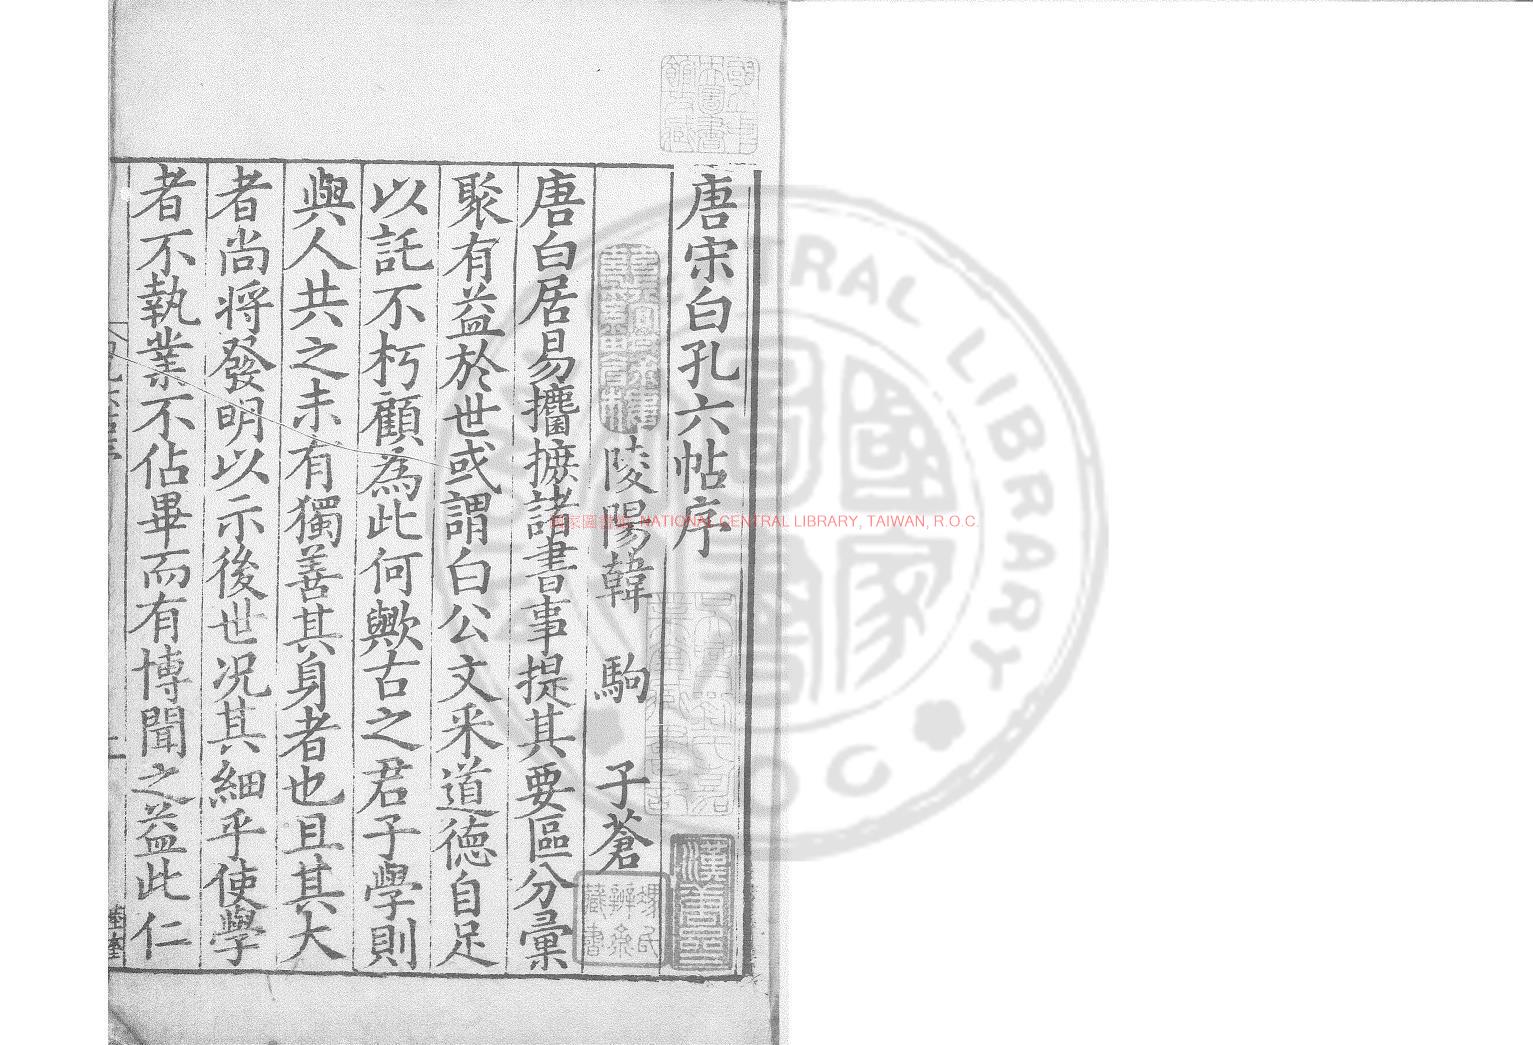 唐宋白孔六帖序
陵陽韓 駒 子蒼
唐白居易攟摭諸書事提其要區分彙
聚有益於世或謂白公文采道德自足
以託不朽顧為此何歟古之君子學則
與人共之未有獨善其身者也且其大
者尚將發明以示後世况其細乎使學
者不執業不佔畢而有博聞之益此仁
國家圖書館, NATIONAL CENTRAL LIBRARY, TAIWAN, R.O.C.